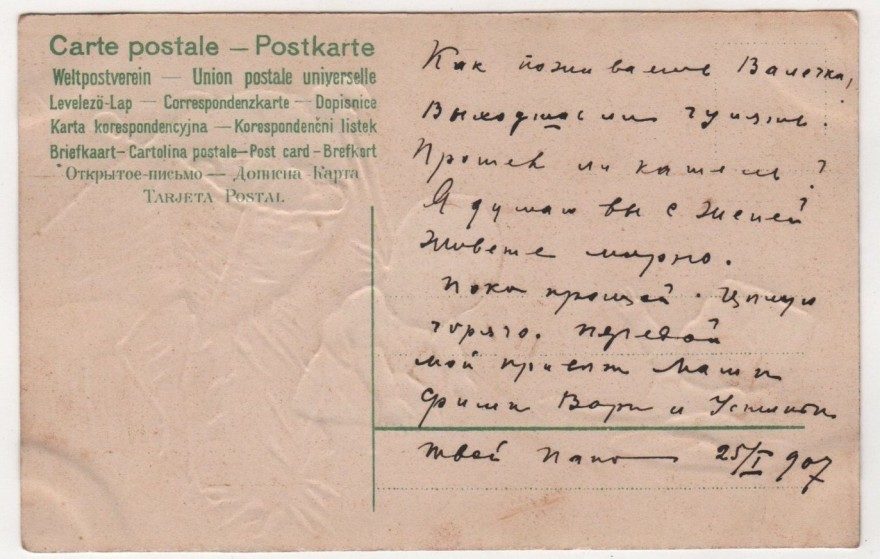 Carte postale — Postkarte
Weltpostverein — Union postale universelle
Levelező-Lap — Correspondenzkarte — Dopisnice
Karta korespondencyjna — Korespondenčni listek
Briefkaart — Cartolina postale — Post card — Brefkort
Открытое-письмо — Дописна Карта
TARJETA POSTAL
Как поживаешь Валечка,
Выходишь ли гулять.
Прошел ли кашель?
Я думаю вы с Женей
живете мирно.
Пока прощай. Целую
горячо. Передай
мой привет Маши
Фими Вари и
твой папа 25/I 907